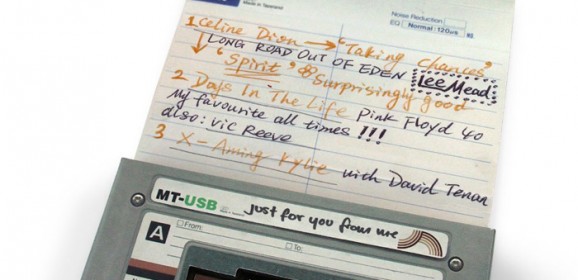 Made in Taiwan
Noise Reduction
EQ Normal : 120us
1 Celine Dion → "Taking Chances"
LONG ROAD OUT OF EDEN Lee Mead
"Spirit" Surprisingly good
2 Days In The Life Pink Floyd 40
My favourite all times !!!
also: Vic Reeve
3 X-Aming Kylie with David Tenan
MT-USB just for you from me
A From:
To: